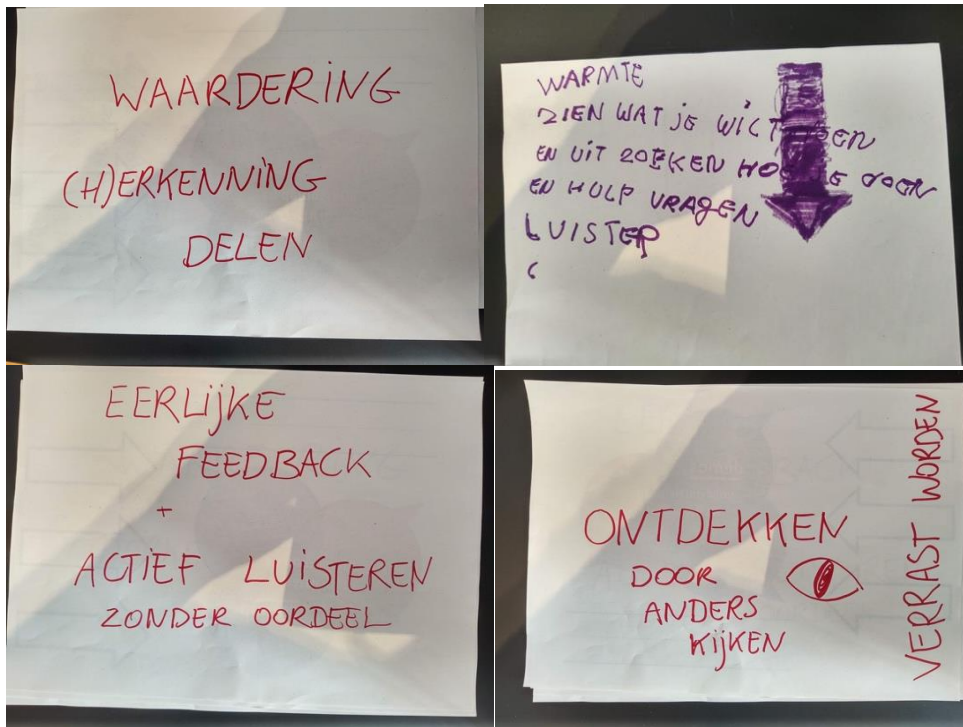 WAARDERING
(H)ERKENNING
DELEN
WARMTE
ZIEN WAT JE WILT
EN UIT ZOEKEN DOEN
EN HULP VRAGEN
LUISTER
EERLIJKE
FEEDBACK
+
ACTIEF LUISTEREN
ZONDER OORDEEL
ONTDEKKEN
DOOR
ANDERS
KIJKEN
VERRAST WORDEN